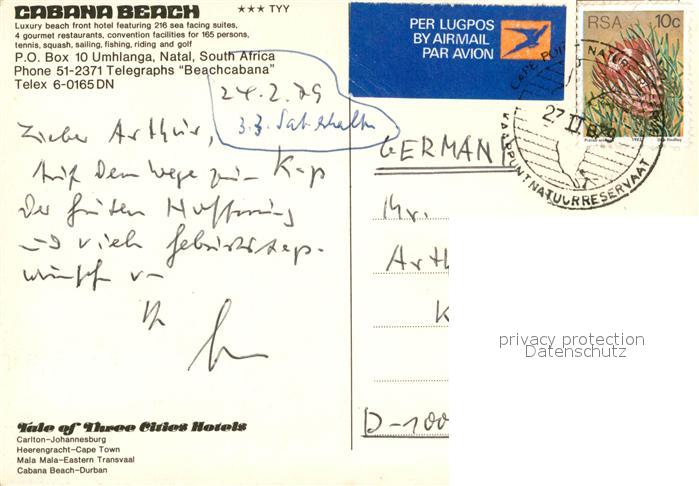 CABANA BEACH ★★★ TYY
Luxury beach front hotel featuring 216 sea facing suites,
4 gourmet restaurants, convention facilities for 165 persons,
tennis, squash, sailing, fishing, riding and golf
P.O. Box 10 Umhlanga, Natal, South Africa
Phone 51-2371 Telegraphs "Beachcabana"
Telex 6-0165 DN
PER LUGPOS
BY AIRMAIL
PAR AVION
RSA 10c
27 II
KAAPPUNTNATUURRESERVAAT
24.2.79
3.3.
Lieber Arthur,
Auf dem Wege zum Kap
der guten Hoffnung
und viele Geburtstags-
wünsche von
GERMANY
Mr.
Arth
K
D-100
privacy protection
Datenschutz
Tale of Three Cities Hotels
Carlton-Johannesburg
Heerengracht-Cape Town
Mala Mala-Eastern Transvaal
Cabana Beach-Durban